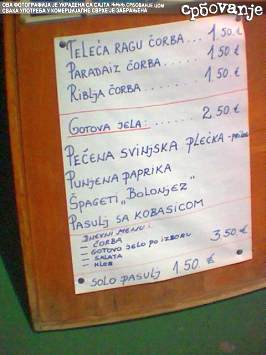 ОВА ФОТОГРАФИЈА ЈЕ УКРАДЕНА СА САЈТА СРБОВАЊЕ ЦОМ
СВАКА УПОТРЕБА У КОМЕРЦИЈАЛНЕ СВРХЕ ЈЕ ЗАБРАЊЕНА
србовање
TELEĆA RAGU ČORBA... 1,50.€
PARADAJZ ČORBA..... 1,50.€
RIBLJA ČORBA..... 1,50.€
GOTOVA JELA: ...... 2,50 €
PEČENA SVINJSKA PLEĆKA -
PUNJENA PAPRIKA
ŠPAGETI „BOLONJEZ"
PASULJ SA KOBASICOM
DNEVNI MENU:
- ČORBA
- GOTOVO JELO PO IZBORU 3,50 €
- SALATA
- HLEB
SOLO PASULJ 1,50. €